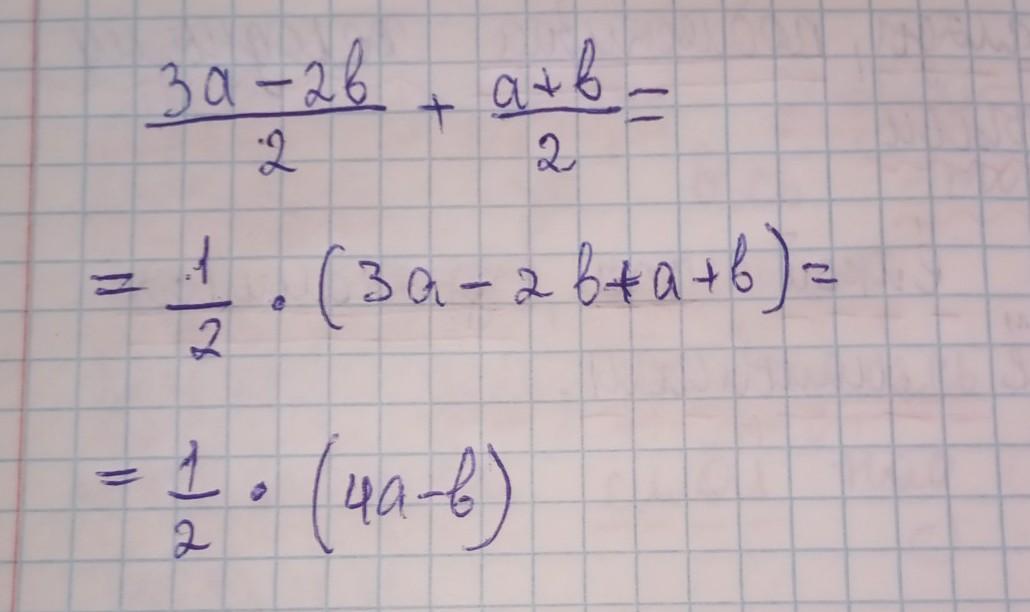 (3a - 2b)/2 + (a + b)/2 =
= 1/2 · (3a - 2b + a + b) =
= 1/2 · (4a - b)